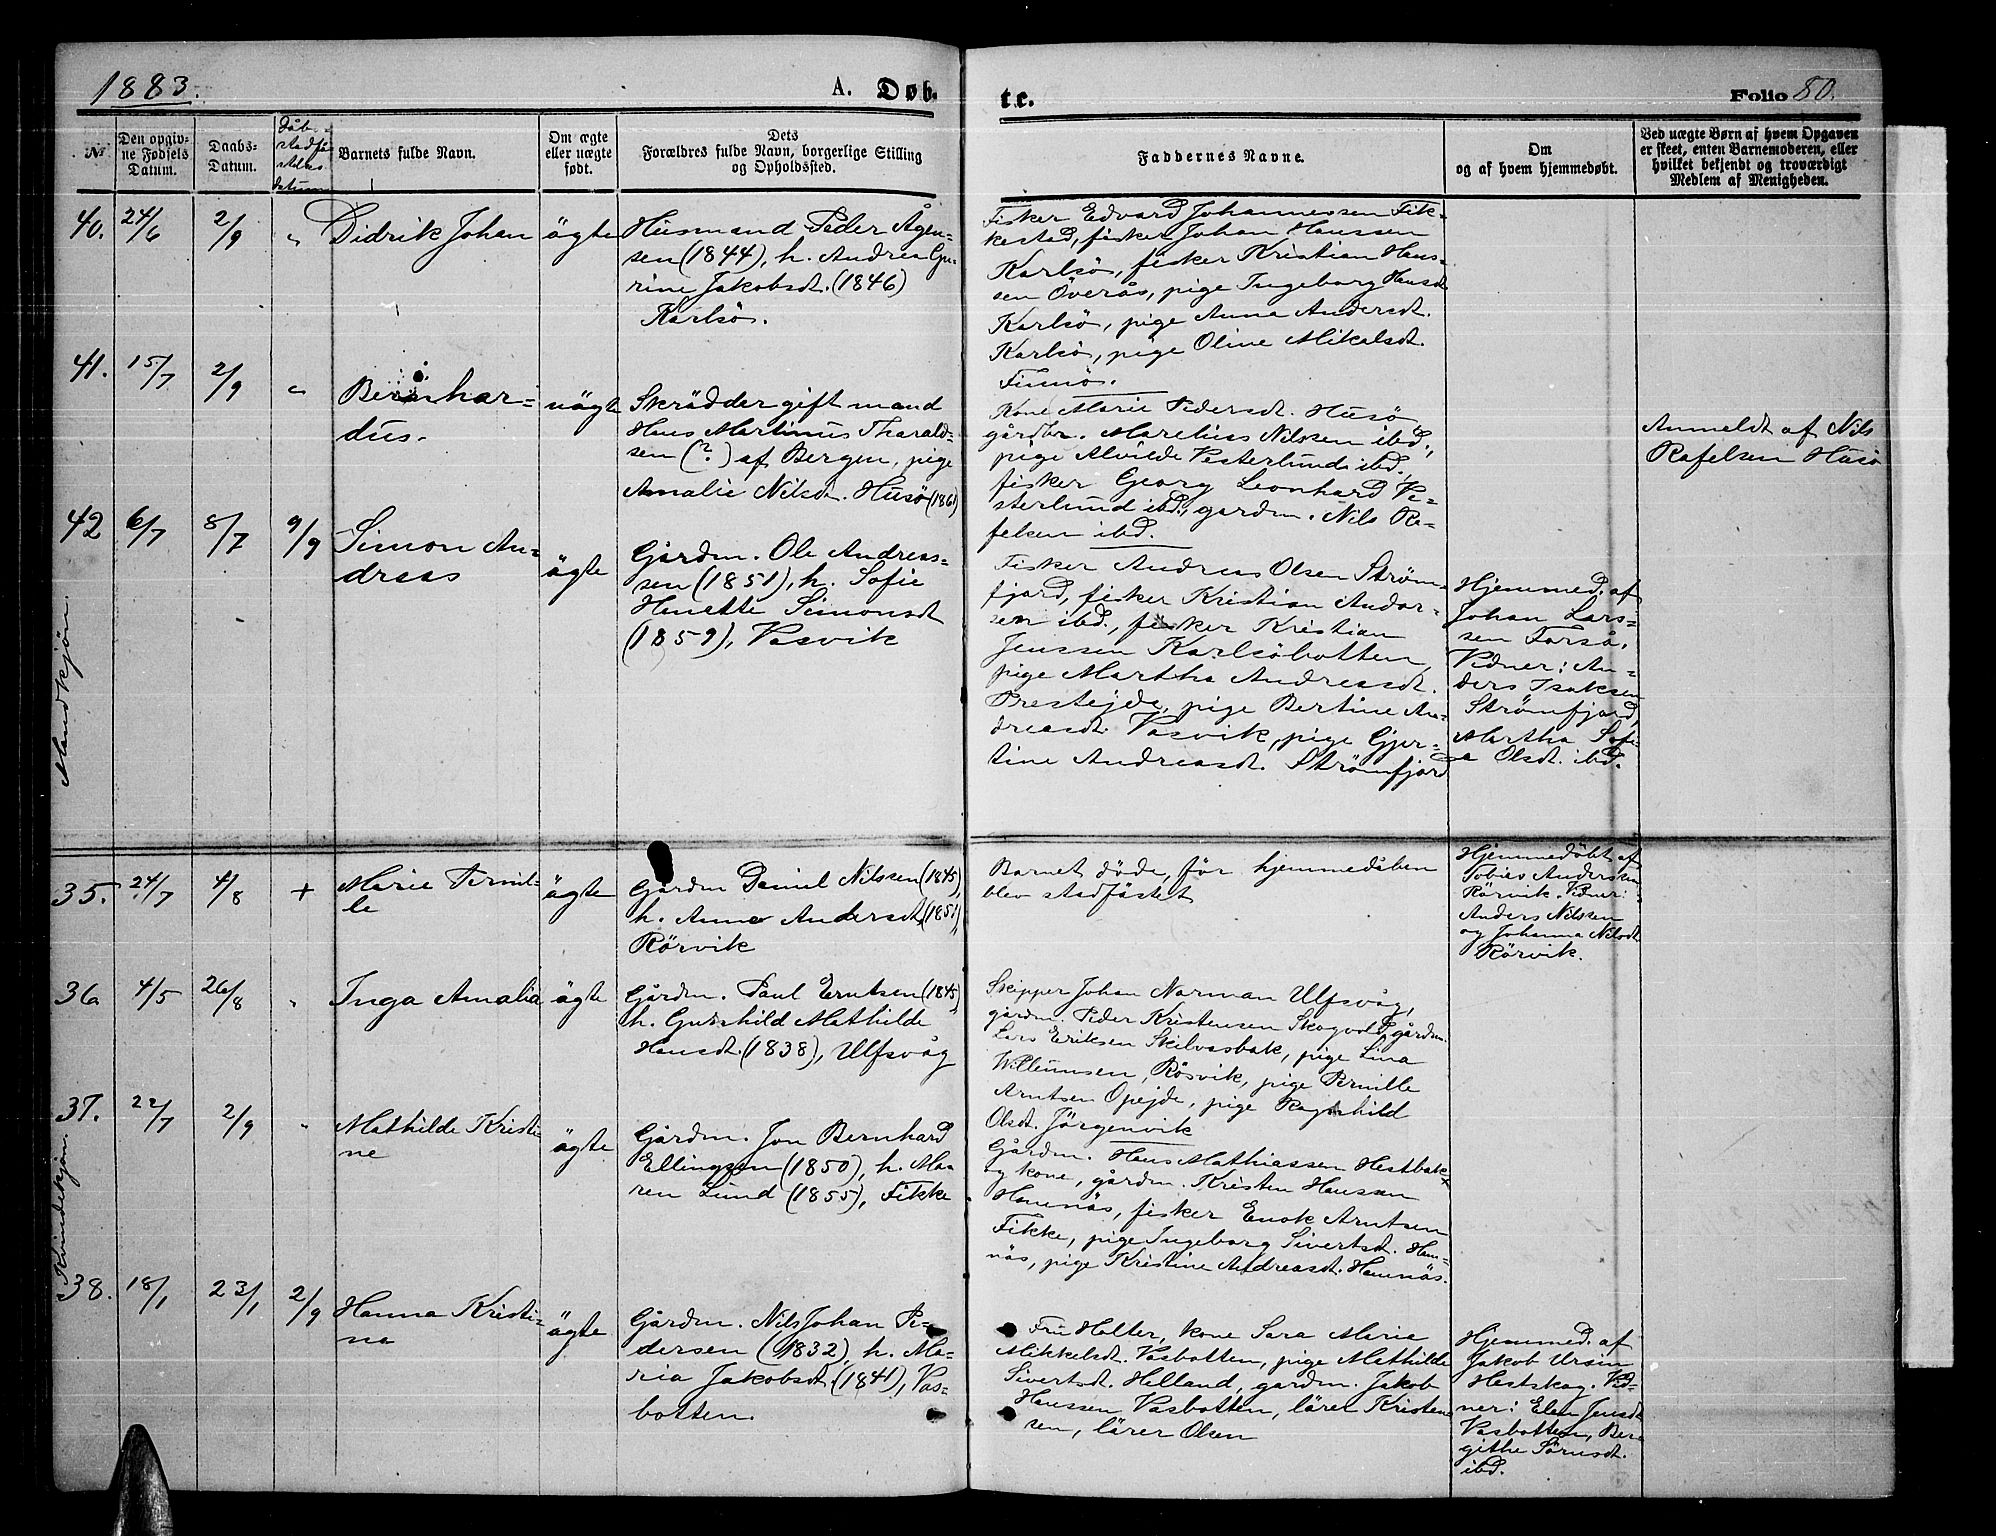 1883.
A. Døb-
te.
Folio 80.
№
Den opgiv-
ne Fødsels
Datum.
Daabs-
Datum.
Dåb-
stadfä-
stelses
datum
Barnets fulde Navn.
Om ægte
eller uægte
født.
Dets
Forældres fulde Navn, borgerlige Stilling
og Opholdssted.
Faddernes Navne.
Om
og af hvem hjemmedøbt.
Ved uægte Børn af hvem Opgaven
er skeet, enten Barnemoderen, eller
hvilket bekjendt og troværdigt
Medlem af Menigheden.
Mandkjön.
40. 24/6 2/9 " Didrik Johan ägte
Husmand Peder Ågen-
sen (1844), h. Andrea Gu-
rine Jakobsdt. (1846)
Karlsö.
Fisker Edvard Johannessen Fik-
kestad, fisker Johan Hanssen
Karlsö, fisker Kristian Hans-
sen Överås, pige Ingeborg Hansdt.
Karlsö, pige Anna Andersdt.
Karlsö, pige Oline Mikalsdt.
Finnö.
41. 15/7 2/9 " Bernhar-
dus. uägte
Skrädder gift mand
Hans Martinus Tharald-
sen (?) af Bergen, pige
Amalie Nilsdt. Husö (1861)
Kone Marie Pedersdt. Husö
gårdbr. Marelius Nilssen ibd.,
pige Alvilde Vesterlund ibd.,
fisker Georg Leonhard Ve-
sterlund ibd., gårdm. Nils Ra-
felsen ibd.
Anmeldt af Nils
Rafelsen Husö
42 6/7 8/7 9/9 Simon An-
dreas ägte
Gårdm. Ole Andreas-
sen (1851), h. Sofie
Henette Simonsdt
(1859), Vasvik
Fisker Andreas Olsen Ström-
fjord, fisker Kristian Andor-
sen ibd., fisker Kristian
Jenssen Karlsöbotten,
pige Martha Andreasdt.
Prestejde, pige Bertine An-
dreasdt. Vasvik, pige Gjer-
tine Andreasdt. Strömfjord
Hjemmed. af
Johan Lars-
sen Forså.
Vidner: An-
ders Isaksen
Strömfjord,
Martha Sofi-
e Olsdt. ibd.
Kvindekjön.
35. 24/7 4/8 + Marie Pernil-
le ägte
Gårdm Daniel Nilssen (1845),
h. Anna Andersdt. (1851),
Rörvik
Barnet döde, för hjemmedåben
blev stadfästet
Hjemmedöbt af
Tobias Anderssen
Rörvik. Vidner:
Anders Nilssen
og Johanna Nilsdt.
Rörvik.
36 4/5 26/8 " Inga Amalia ägte
Gårdm. Paul Erntsen (1845),
h. Gunhild Mathilde
Hansdt. (1838), Ulfsvåg
Skipper Johan Norman Ulfsvåg,
gårdm. Peder Kristensen Skogvold, gårdm.
Lars Eriksen Skilvasbak, pige Lina
Willumsen, Rösvik, pige Pernille
Arntsen Opejde, pige Ragnhild
Olsdt. Jörgenvik
37. 22/7 2/9 " Mathilde Kristi-
ne ägte
Gårdm. Jon Bernhard
Ellingsen (1850), h. Ma-
ren Lund (1855), Fikke
Gårdm. Hans Mathiassen Hestbak
og kone, gårdm. Kristen Hanssen
Hamnäs, fisker Enok Arntsen
Fikke, pige Ingeborg Sivertsdt. Ham-
näs, pige Kristine Andreasdt. Hamnäs.
38. 18/1 23/1 2/9 Hanna Kristi-
na ägte
Gårdm. Nils Johan Pe-
dersen (1832), h. Ma-
ria Jakobsdt. (1841), Vas-
botten.
Fru Holter, kone Sara Marie
Mikkelsdt. Vasbotten, pige Mathilde
Sivertsdt. Helland, gårdm. Jakob
Hanssen Vasbotten, lärer Kristen-
sen, lärer Olsen
Hjemmed. af
Jakob Ursin
Hestskog. Vid-
ner: Elen Jensdt.
Vasbotten, Ber-
githe Sörensdt.
ibd.